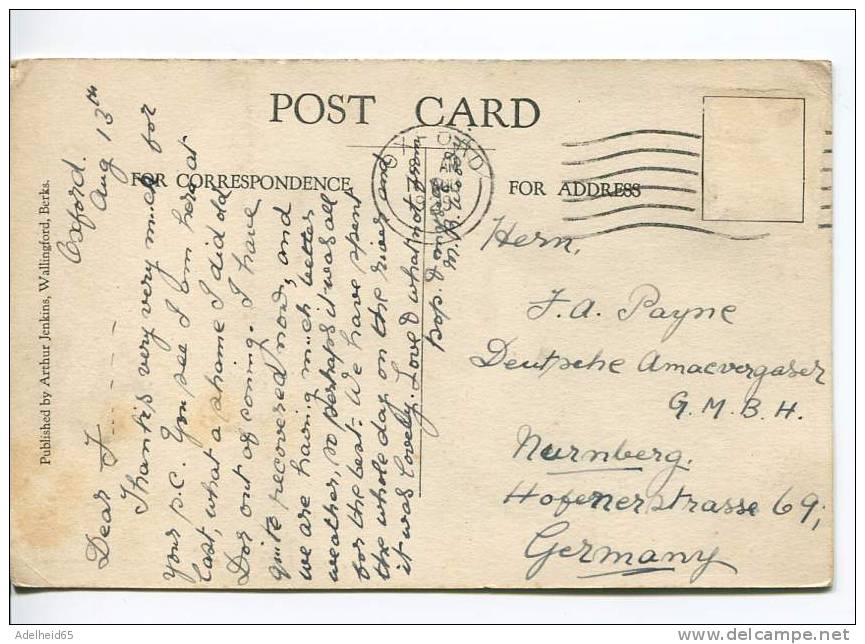 POST CARD
FOR CORRESPONDENCE
FOR ADDRESS
Published by Arthur Jenkins, Wallingford, Berks.
Oxford.
Aug 13th
Dear F------
Thanks very very much for
your p.c. You see I am here at
last, what a shame I did old
Dor out of coming. I have
quite recovered now, and
we are having much better
weather, so perhaps it was all
for the best. We have spent
the whole day on the river and
it was lovely. Love & what not from
pop. & myself
OXFORD
Herrn,
F. A. Payne
Deutsche Amacvergaser
G. M. B. H.
Nurnberg.
Hofenerstrasse 69,
Germany
Adelheid65
www.delcampe.net